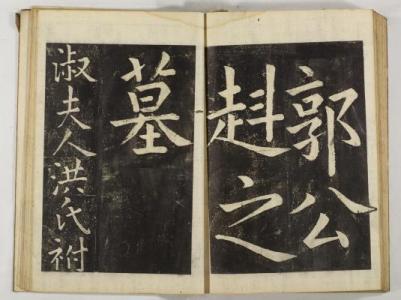 郭公
赳之
墓
淑夫人洪氏祔